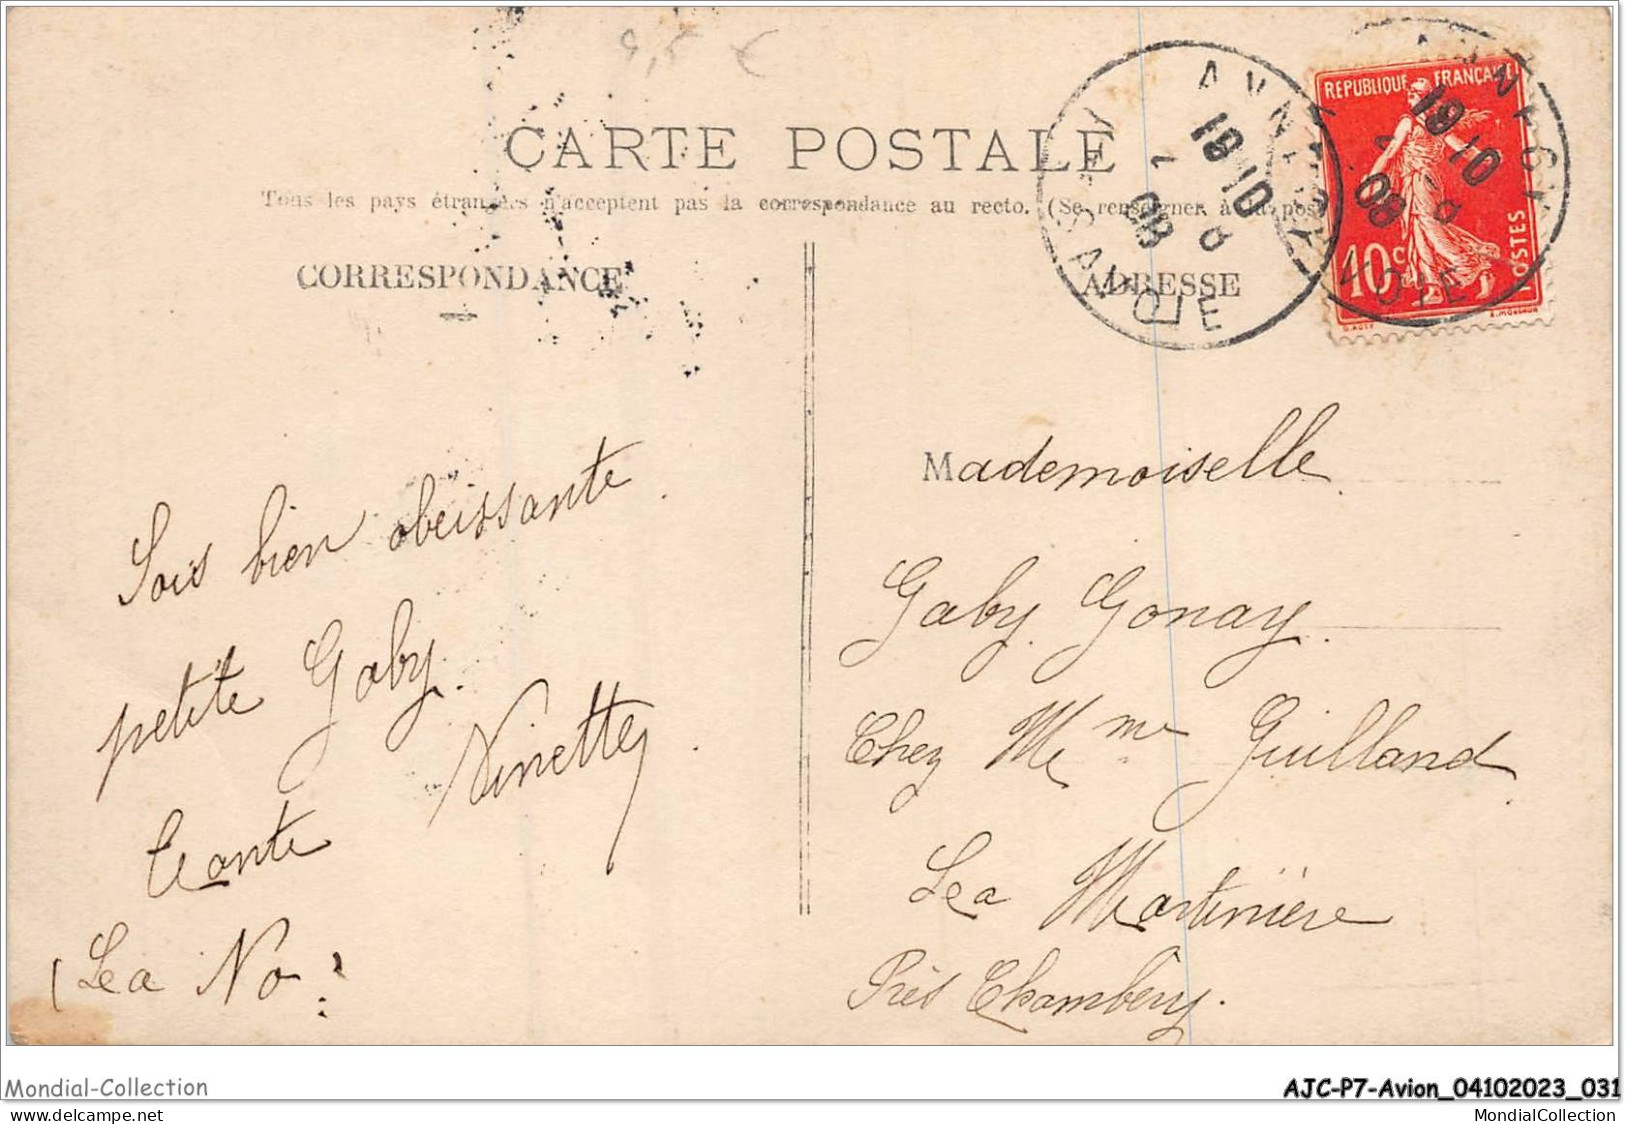 9,5 €
CARTE POSTALE
Tous les pays étrangers n'acceptent pas la correspondance au recto. (Se renseigner à la poste
CORRESPONDANCE
ADRESSE
ANNECY
18 10
7 - 8
08
SAVOIE
REPUBLIQUE FRANÇAISE
10c
POSTES
ANNECY
18 10
08
SAVOIE
Sois bien obeissante
petite Gaby.
Ninette
Tante
(Lea No
Mademoiselle
Gaby Gonay
Chez Mme Guilland
Lea Martinière
Près Chambéry.
Mondial-Collection
www.delcampe.net
AJC-P7-Avion_04102023_031
MondialCollection